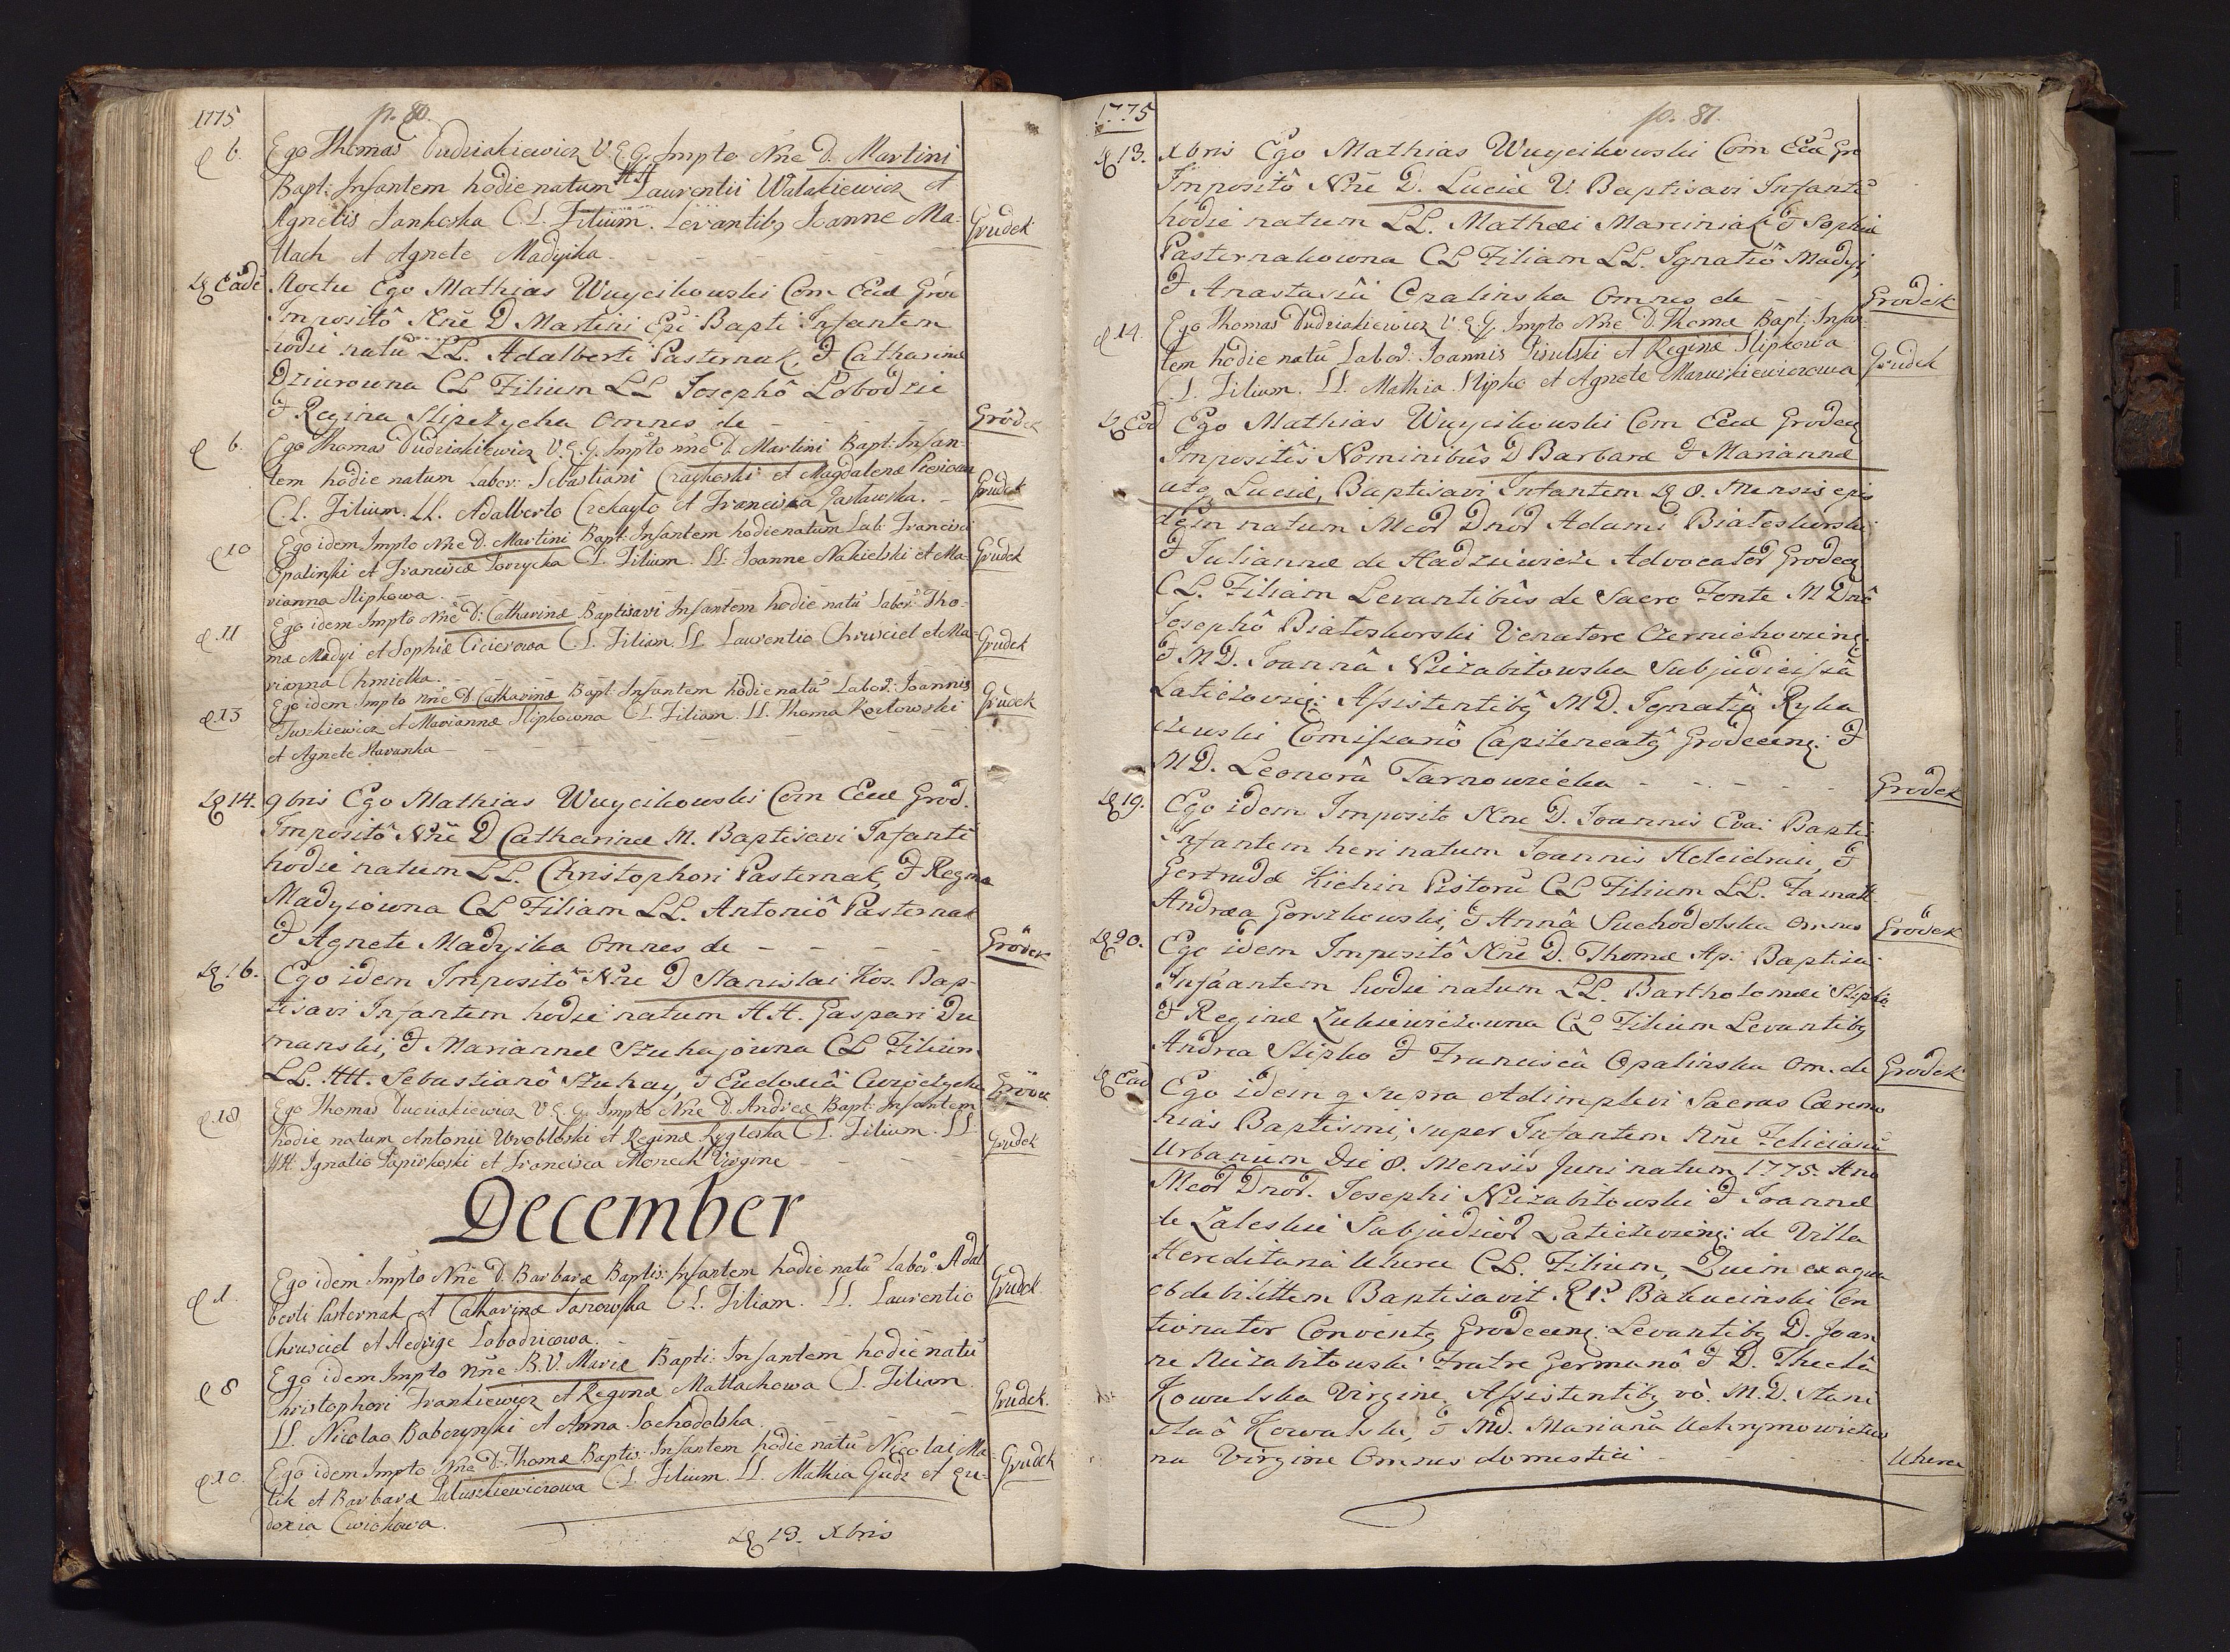 1775
p. 80.
d 6. Ego Thomas Dudziakiewicz V. E. G. Impto Nñe D. Martini
Bapt: Infantem hodie natum HH Laurentii Walakiewicz et
Agnetis Jankoska C. L. Filium. Levantibq Joanne Ma-
llach et Agnete Madyika. Grudek
d Eadē Noctu Ego Mathias Wuycikowski Com Eccl Gro
Impositô Nñe D Martini Epi Bapti Infantem
hodie natū LL. Adalberti Pasternak, & Catharinæ
Dziurowna CL Filium LL Josephô Lobodzie
& Regina Slipczycha Omnes de - - Gródek
d 6. Ego Thomas Dudziakiewicz V. E. G. Impto nñe D. Martini Bapt: Infan-
tem hodie natum Labor: Sebastiani Craykoski et Magdalenæ
C. L. Filium. LL. Adalberto Czekayło et Francisca Zasławska. - Grudek
d 10 Ego idem Impto Nñe D. Martini Bapt: Infantem hodie natum Lab: Francisci
Opalinski et Franciscæ Torzycka C. L. Filium. LL: Joanne Nakielski et Ma- Grudek
rianna Slipkowa.
d 11 Ego idem Impto Nñe D: Catharinæ Baptisavi Infantem hodie natū Labor: Tho-
mæ Madyi et Sophiæ Cicierowa C. L. Filiam. LL Laurentio Chrusciel et Ma- Grudek
rianna Chmielka.
d 13 Ego idem Impto nñe D. Catharinæ Bapt: Infantem hodie natū Labor: Joannis
Juszkiewicz et Mariannæ Slipkowna C L Filiam. LL. Thoma Kozlowski Grudek
et Agnete Stavarska
d 14. 9bris Ego Mathias Wuycikowski Com Eccl Grod.
Impositô Nñe D Catharinæ M. Baptisavi Infantē
hodie natum LL. Christophori Pasternak, & Reginæ
Madyiowna CL Filiam LL. Antoniô Pasternak
& Agnete Madyika Omnes de - - - Gródek
d 16. Ego idem Impositô Nñe D Stanislai Kos. Bap-
tisavi Infantem hodie natum HH. Gaspari Du
manski, & Mariannæ Szuhajowna CL Filium
LL. HH. Sebastianô Szuhay, & Eudoxiâ Gródek
d 18 Ego Thomas Dudziakiewicz V. E. G. Impto Nñe D. Andreæ Bapt: Infantem
hodie natum Antonii Wrobloski et Reginæ Rygleska C L. Filium. LL. Grudek
HH. Ignatio Papirkoski et Francisca Monech Virgine
December
d 1. Ego idem Impto Nñe D. Barbaræ Baptis: Infantem hodie natū Labor: Adal
berti Pasternak et Catharinæ Janowska C L. Filiam. LL. Laurentio Grudek
Chrusciel et Hedvige Lobodzicowa.
d 8 Ego idem Impto Nñe B. V. Mariæ Bapti: Infantem hodie natū
Christophori Frankiewicz et Reginæ Mallachowa C. L. Filiam. Grudek.
LL Nicolao Babczynski et Anna Sochodolska.
d 10. Ego idem Impto Nñe D. Thomæ Baptis: Infantem hodie natū Nicolai Ma-
lik et Barbaræ Paluszkiewiczowa C. L. Filium LL. Mathia Gudz et Eu- Grudek
doxia Cwickowa.
d 13. Xbris
1775
p. 81.
d 13. Xbris Ego Mathias Wuycikowski Com Eccl Gro
Impositô Nñe D. Luciæ V. Baptisavi Infantē
hodie natum LL. Mathæi Marciniak & Sophiæ
Pasternakowna CL Filiam LL. Ignatiô Madyi
& Anastasiâ Opalinska Omnes de - - Grodek
d 14. Ego Thomas Dudziakiewicz V. E. G. Impto Nñe D. Thomæ Bapt: Infan-
tem hodie natū Labor: Joannis Pisulski et Reginæ Slipkowa Grudek
C. L. Filium. LL. Mathia Slipko et Agnete Maruszkiewiczowa
d Eod Ego Mathias Wuycikowski Com Eccl Grodeq
Impositis Nominibûs D Barbaræ & Mariannæ
atq Luciæ, Baptisavi Infantem d 8. Mensis ejus
dem natum Mcor Dnor Adami Białoskorski
& Juliannæ de Hadziewicze Advocator Grodeq
CL. Filiam Levantibûs de Sacro Fonte M Dnô
Josephô Białoskorski Venatore Czerniehoviens:
& MD. Joannâ Niezabitowska Subjudicissâ
Laticzoviens: Assistentibq MD. Ignatiô Ryka
czewski Comissariô Capiteneatq Grodecens: &
MD. Leonorâ Tarnowiecka - - - Grodek
d 19. Ego idem Imposito Nñe D. Joannis Eva: Bapti:
Infantem heri natum Joannis &
Gertrudæ Kichin Pistorū CL Filium LL. Famat.
Andræa Gorszkowski, & Annâ Suchodolska Omnes Grodek
d 20. Ego idem Impositô Nñe D. Thomæ Ap: Baptisa:
Infaantem hodie natum LL. Bartholomæi Slipko
& Reginæ Zukiewiczowna CL Filium Levantibq
Andrea Slipko & Franciscâ Opalinska Om. de Grodek
d Ead Ego idem q supra Adimplevi Sacras Cæremo
nias Baptismi, super Infantem Nñe Felicianū
Urbanum Die 8. Mensis Juni natum 1775. Ano
Mcor Dnor. Josephi Niezabitowski & Joannæ
de Zaleskie Subjudicor Laticzoviens: de Villa
Hereditaria Uherce CL. Filium, Quem ex aqua
ob debilittem Baptisavit RP. Con
tionator Conventq Grodecens: Levantibq D. Joan
ne Niezabitowski Fratre Germanô & D. Theclâ
Kowalska Virgine, Assistentibq vô. M. D. Stani
slaô Kowalski, & MD. Marianâ Uchrymowiczow
na Virgine Omnes domestici - - - Uherce